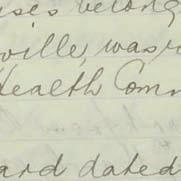 ises belong
ville, was
Health Com
ard dated